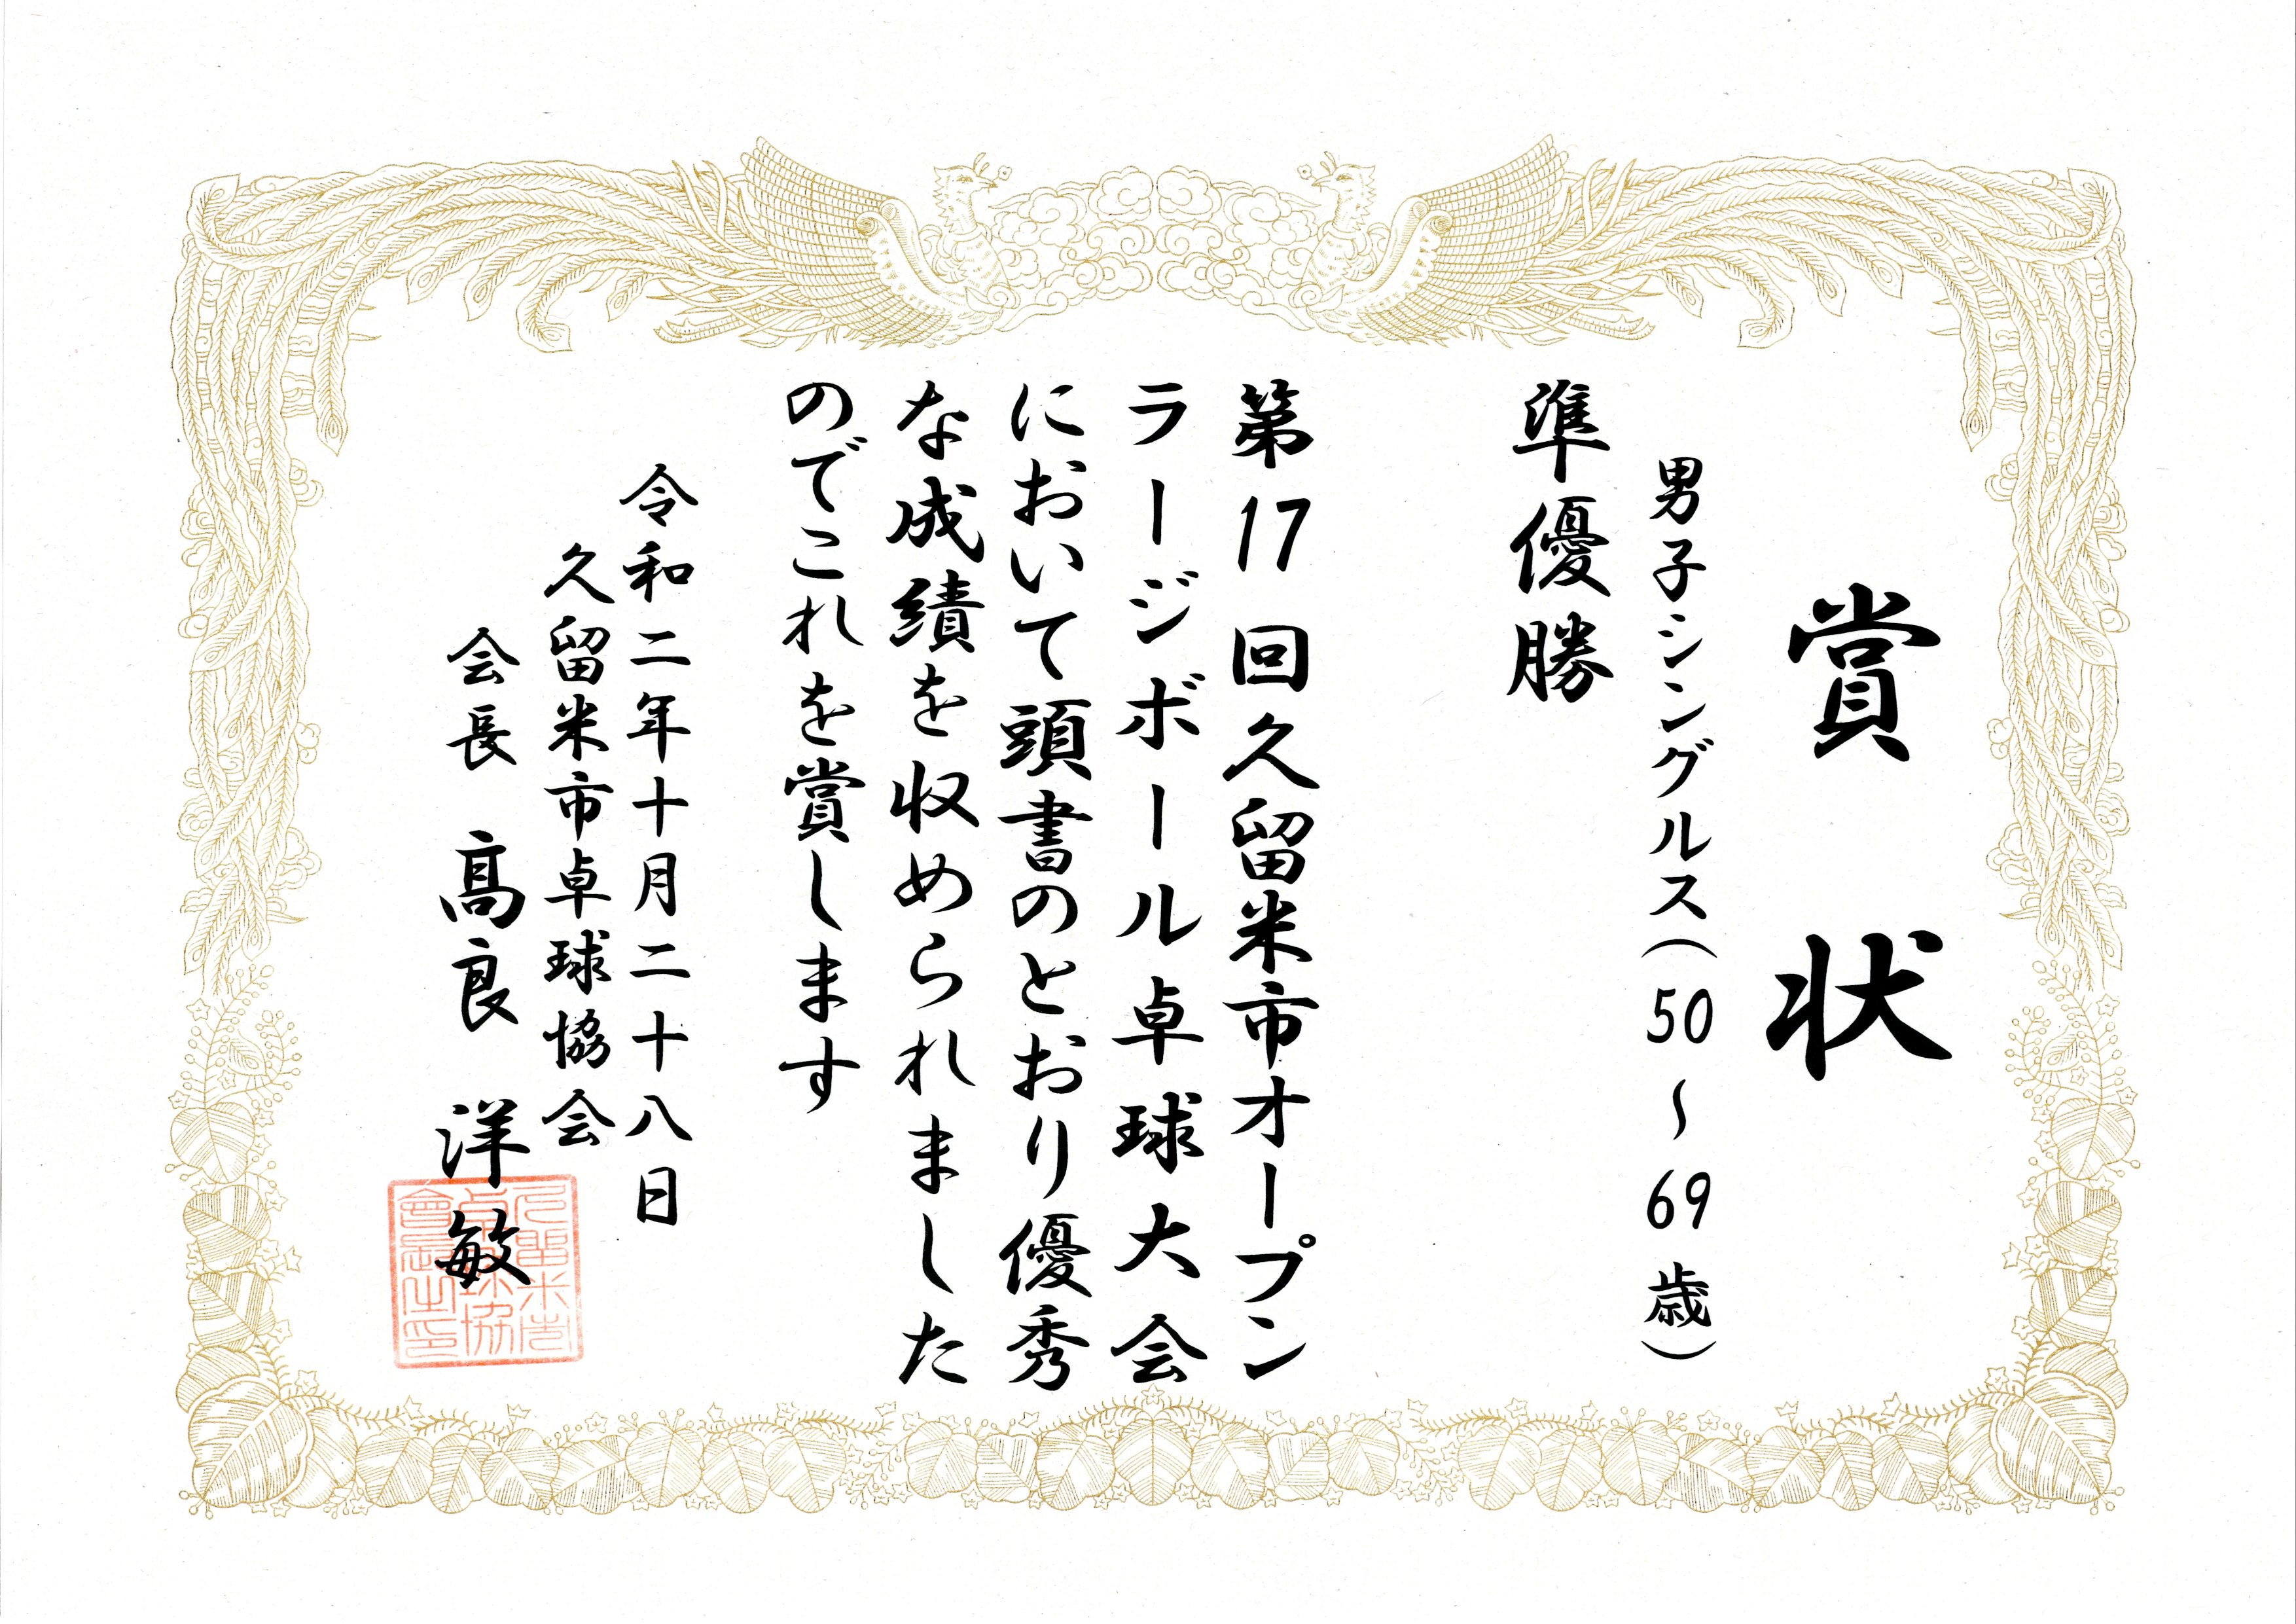 賞状
男子シングルス（50～69歳）
準優勝
第17回久留米市オープン
ラージボール卓球大会
において頭書のとおり優秀
な成績を収められました
のでこれを賞します
令和二年十月二十八日
久留米市卓球協会
会長　髙良　洋敏